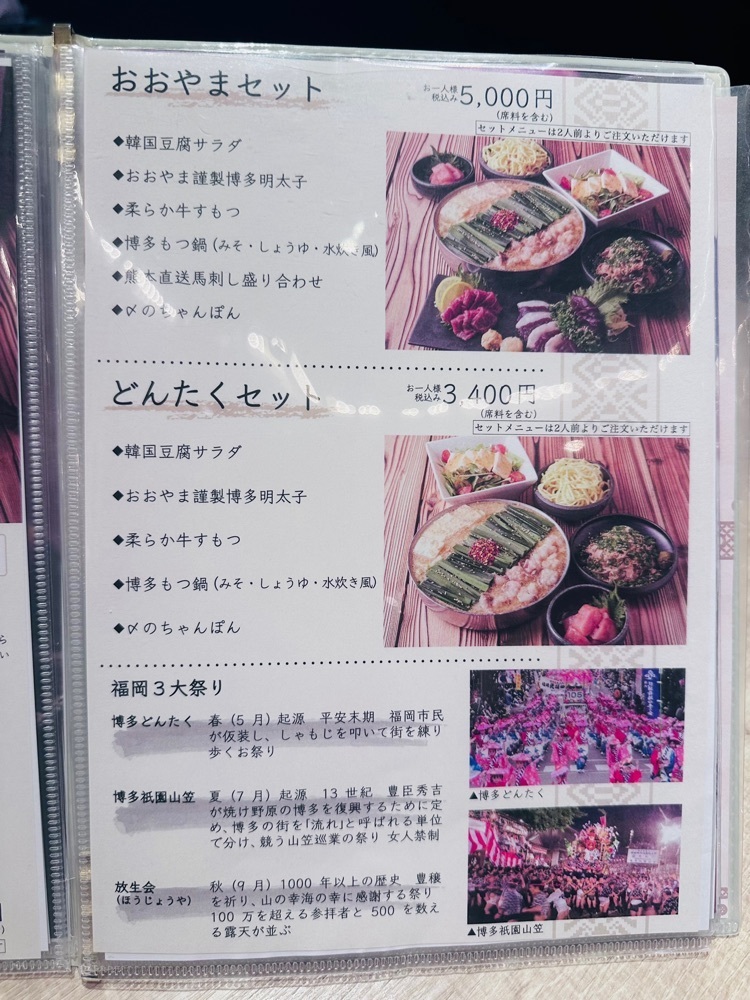 おおやまセット
お一人様
税込み5,000円
(席料を含む)
セットメニューは2人前よりご注文いただけます
◆韓国豆腐サラダ
◆おおやま謹製博多明太子
◆柔らか牛すもつ
◆博多もつ鍋(みそ・しょうゆ・水炊き風)
◆熊本直送馬刺し盛り合わせ
◆〆のちゃんぽん
どんたくセット
お一人様
税込み3,400円
(席料を含む)
セットメニューは2人前よりご注文いただけます
◆韓国豆腐サラダ
◆おおやま謹製博多明太子
◆柔らか牛すもつ
◆博多もつ鍋(みそ・しょうゆ・水炊き風)
◆〆のちゃんぽん
福岡3大祭り
博多どんたく 春(5月)起源 平安末期 福岡市民
が仮装し、しゃもじを叩いて街を練り
歩くお祭り
▲博多どんたく
博多祇園山笠 夏(7月)起源 13世紀 豊臣秀吉
が焼け野原の博多を復興するために定
め、博多の街を「流れ」と呼ばれる単位
で分け、競う山笠巡業の祭り 女人禁制
放生会 秋(9月)1000年以上の歴史 豊穣
(ほうじょうや) を祈り、山の幸海の幸に感謝する祭り
100万を超える参拝者と500を数え
る露天が並ぶ
▲博多祇園山笠